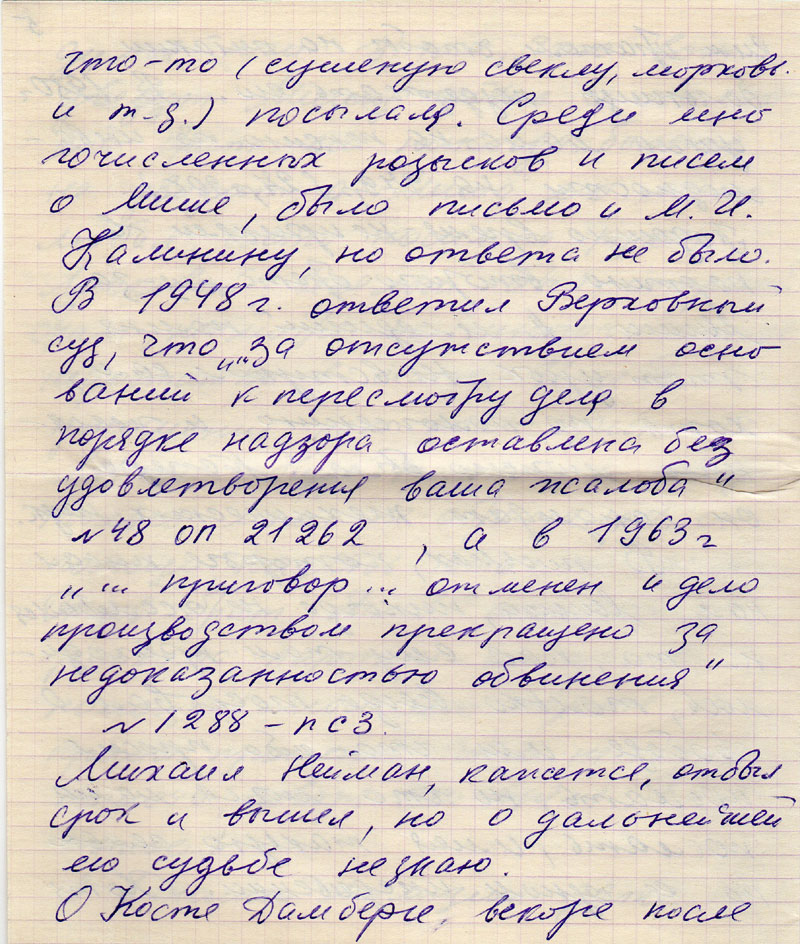 что-то (сушеную свеклу, морковь
и т-д.) посылала. Среди мно
гочисленных розысков и писем
о Мише, было письмо и М. И.
Калинину, но ответа не было.
В 1948 г. ответил Верховный
суд, что „"за отсутствием осно
ваний к пересмотру дела в
порядке надзора оставлена без
удовлетворения ваша жалоба"
№48 оп 21262 , а в 1963 г
„ ... приговор ... отменен и дело
производством прекращено за
недоказанностью обвинения"
№1288 – пс3.
Михаил Нейман, кажется, отбыл
срок и вышел, но о дальнейшей
его судьбе не знаю.
О Косте Дамберге, вскоре после